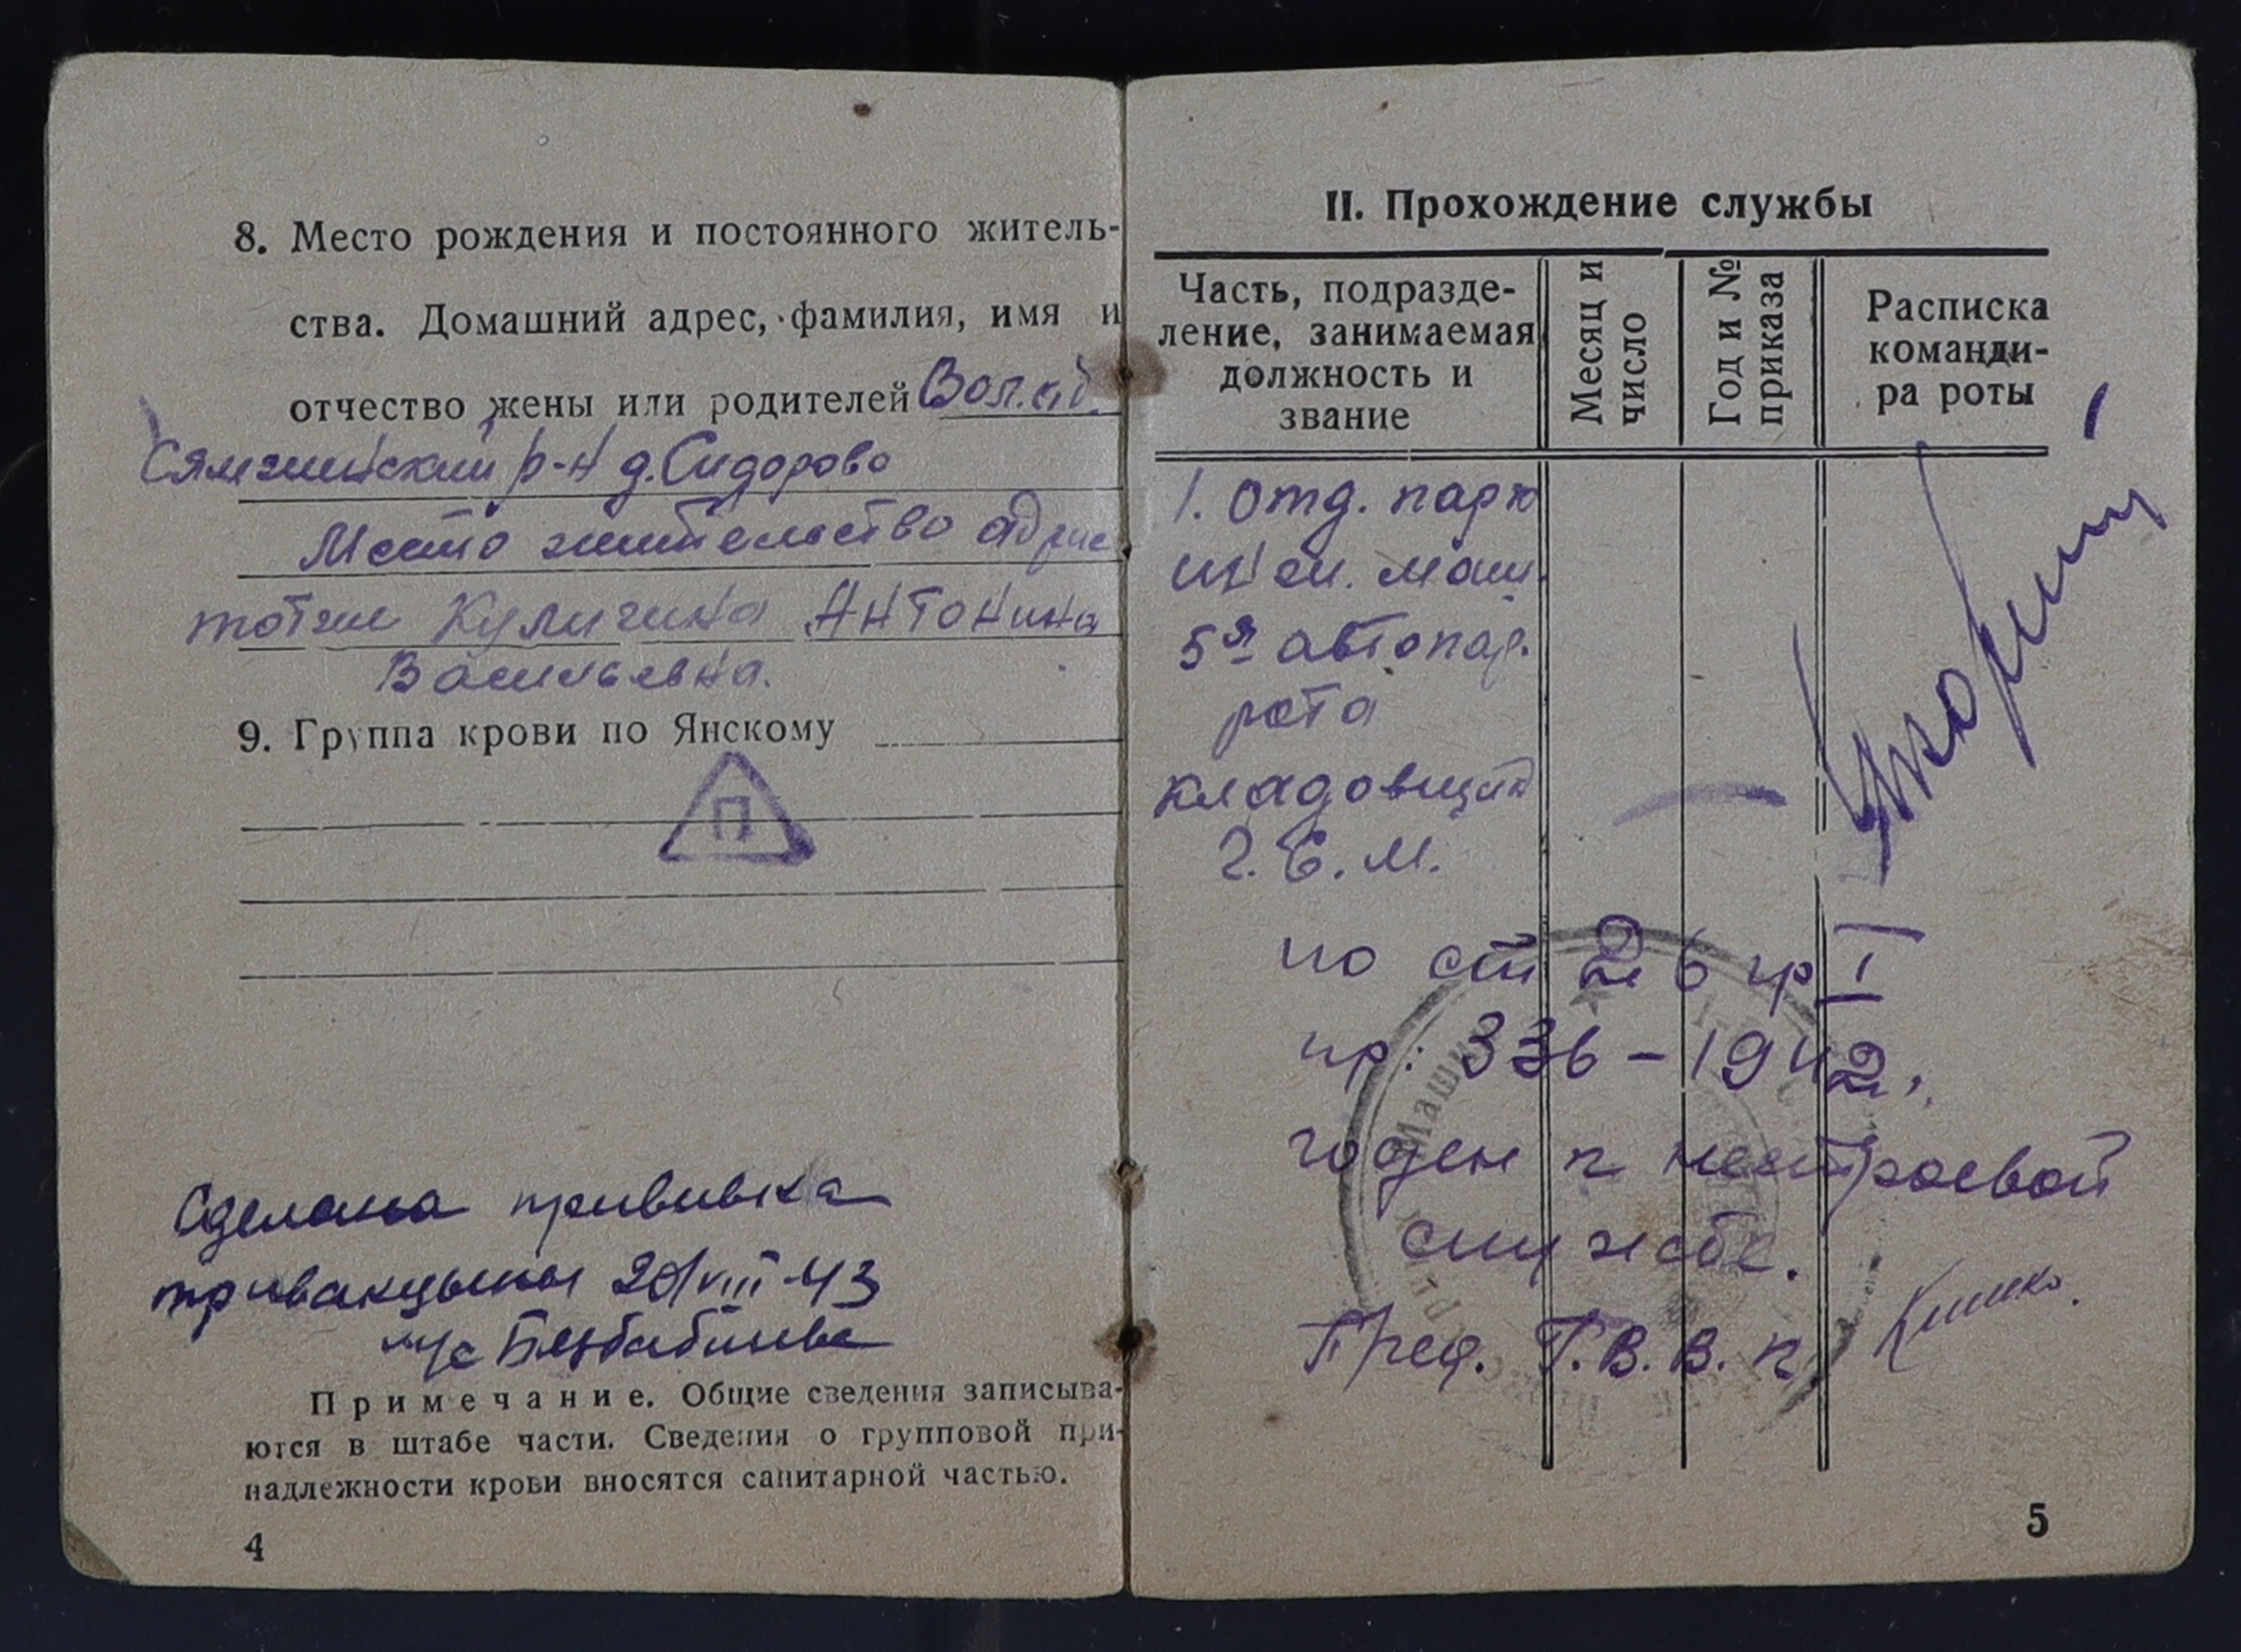 8. Место рождения и постоянного житель-
ства. Домашний адрес, фамилия, имя и
отчество жены или родителей Вол. обл.
Сямженский р-н д. Сидорово
Место жительство адрес
тотже Куличина Антонина
Васильевна.
9. Группа крови по Янскому
П
Сделана прививка
тривакцыны 20/VIII-43
м/с
Примечание. Общие сведения записыва-
ются в штабе части. Сведения о групповой при-
надлежности крови вносятся санитарной частью.
4
II. Прохождение службы
Часть, подразде-
ление, занимаемая
должность и
звание
Месяц и
число
Год и №
приказа
Расписка
команди-
ра роты
1. Отд. парк
инж. маш.
5я автопар.
рота
кладовщик
Г.С.М.
по ст 26 гр I
пр: 336-1942.
годен к нестроевой
службе.
Пред. Г.В.В.К
5